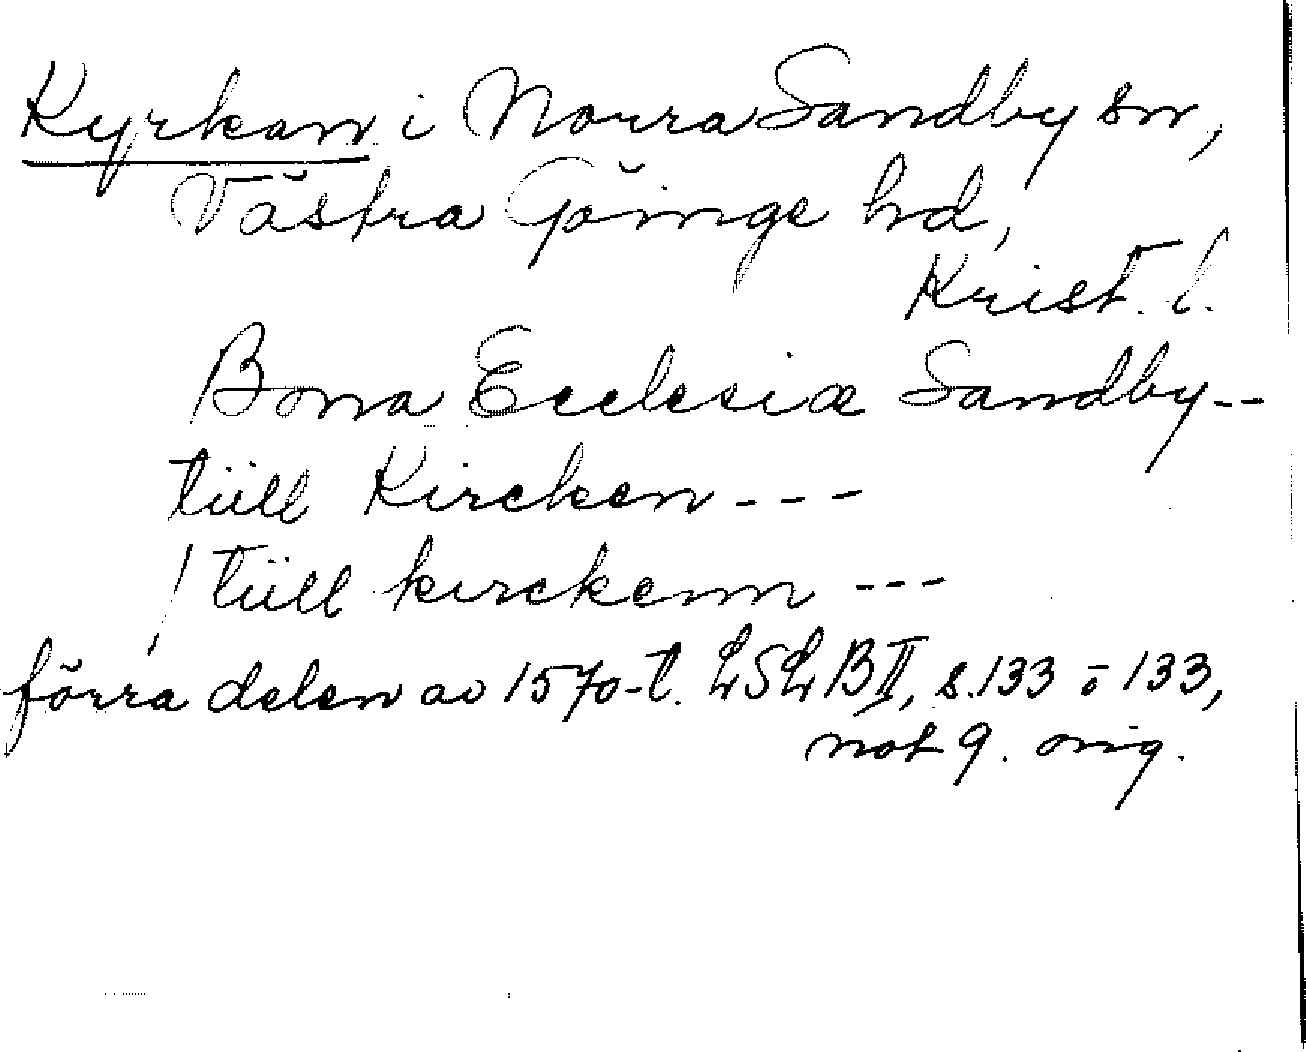 Kyrkan i Norra Sandby sn,
Västra Göinge hd,
Krist. l.
Bona Ecclesiæ Sandby--
tüll Kircken ---
/ tüll kirckenn ---
förra delen av 1570-t. LSLB II, s. 133 o 133,
not 9. orig.